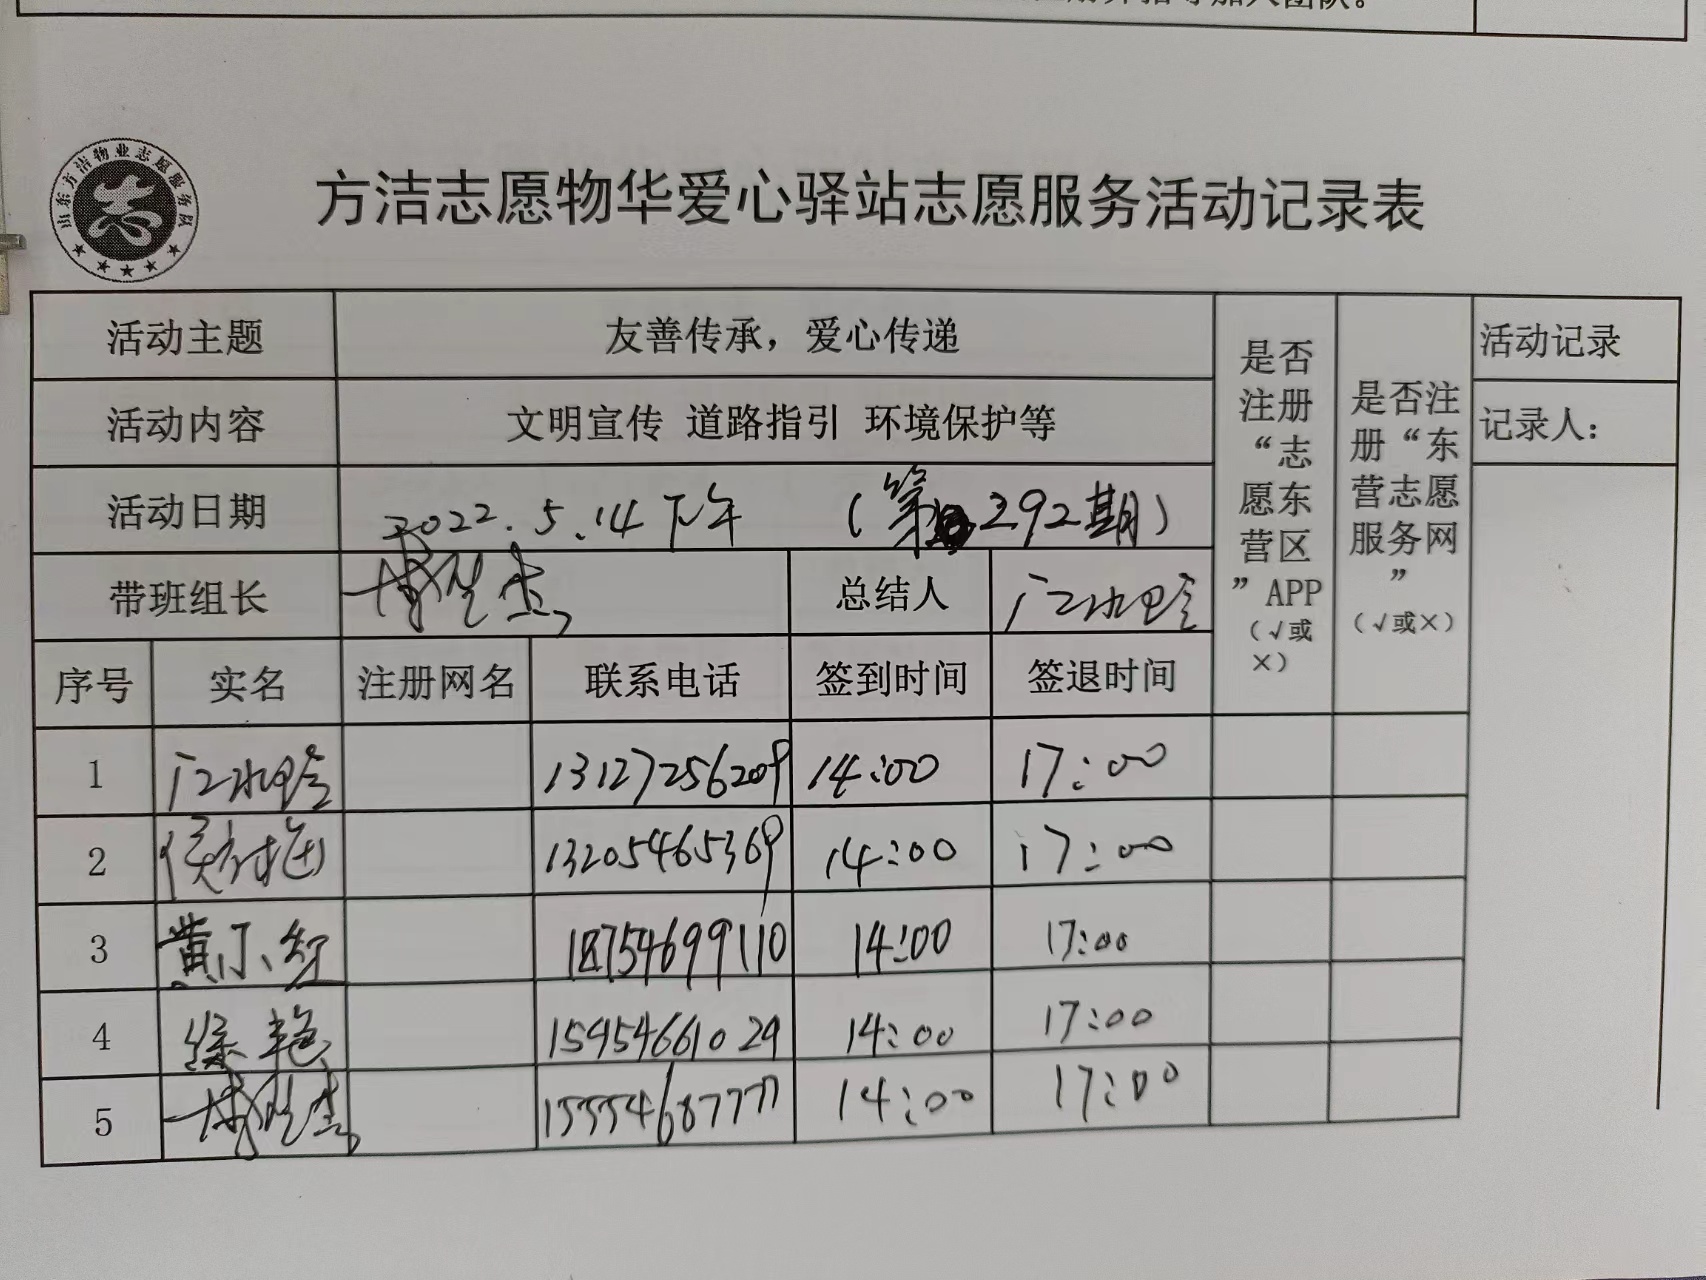 加入团队。
山东方洁物业志愿服务队
方洁志愿物华爱心驿站志愿服务活动记录表
活动主题 友善传承，爱心传递 是否注册“志愿东营区”APP（√或×） 是否注册“东营志愿服务网”（√或×） 活动记录
活动内容 文明宣传 道路指引 环境保护等 记录人：
活动日期 2022.5.14下午 （第292期）
带班组长 总结人
序号 实名 注册网名 联系电话 签到时间 签退时间
1 13127256209 14:00 17:00
2 13205465369 14:00 17:00
3 黄小红 18754699110 14:00 17:00
4 徐艳 15954661029 14:00 17:00
5 15554687777 14:00 17:00